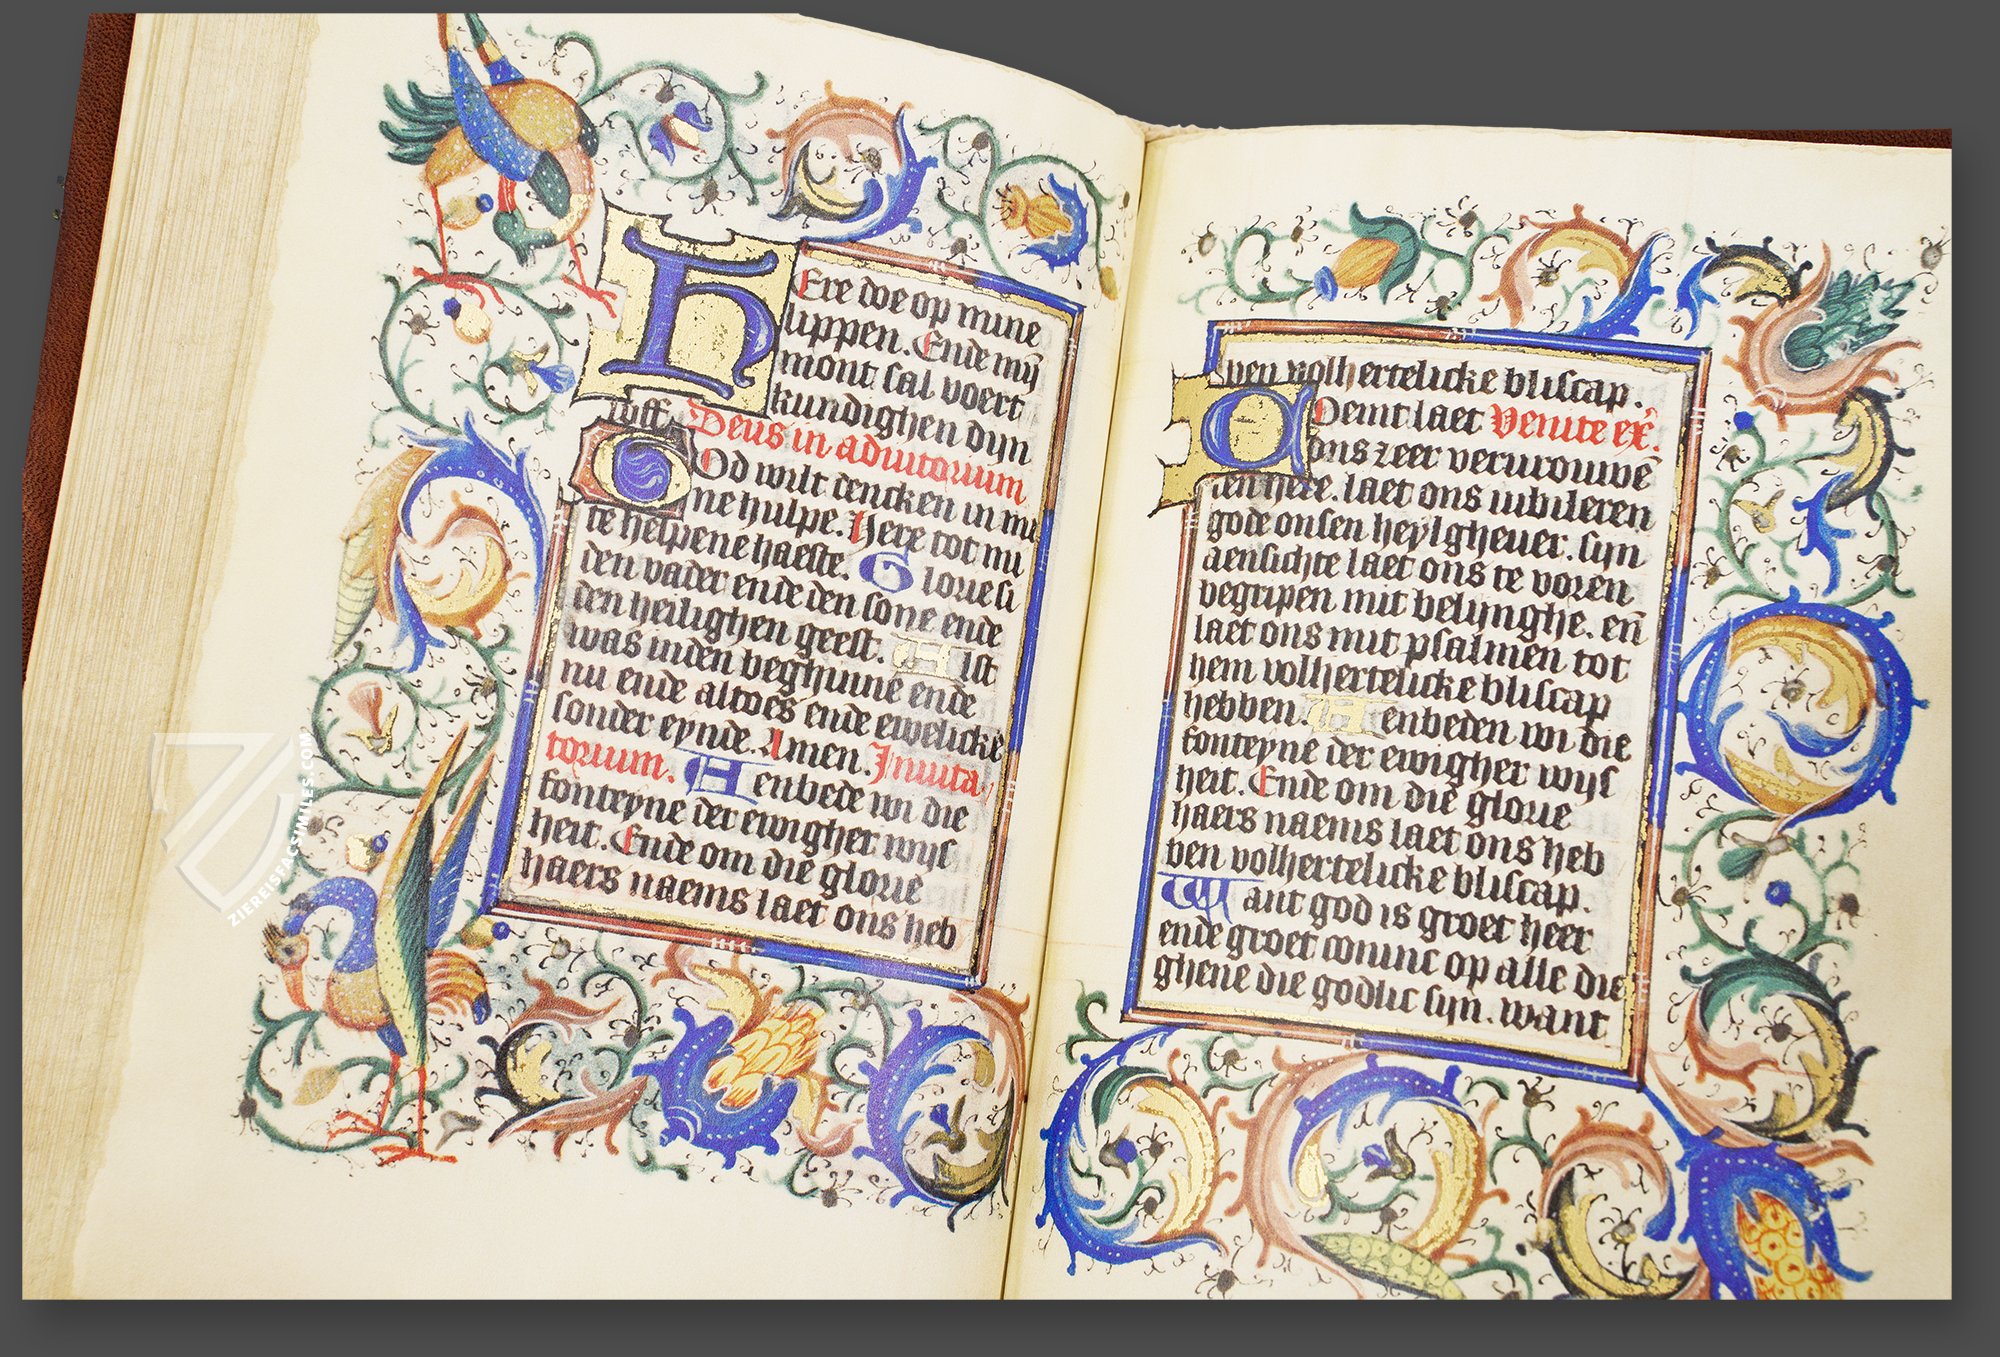 HEre doe op mine
lippen. Ende mȳ
mont sal voert
kundighen dijn
loff. Deus in adiutorium
GOd wilt dencken in mi
ne hulpe. Here tot mi
te helpene haeste. Glorie si
den vader ende den sone ende
den heilighen geest. Alst
was inden beghinne ende
nu ende altoes ende ewelicke
sonder eynde. Amen. Inuita
torium. Aenbede wi die
fonteyne der ewigher wijs
heit. Ende om die glorie
haers naems laet ons heb
ben volhertelicke bliscap.
Coemt laet Venite ex̄.
ons zeer vervrouwē
den here. laet ons iubileren
gode onsen heylgheuer. sijn
aensichte laet ons te voren
begripen mit belijnghe. en̄
laet ons mit psalmen tot
hem volhertelicke bliscap
hebben. Aenbeden wi die
fonteyne der ewigher wijs
heit. Ende om die glorie
haers naems laet ons heb
ben volhertelicke bliscap.
Want god is groet heer
ende groet coninc op alle die
ghene die godlic sijn. want
ZIEREISFACSIMILES.COM